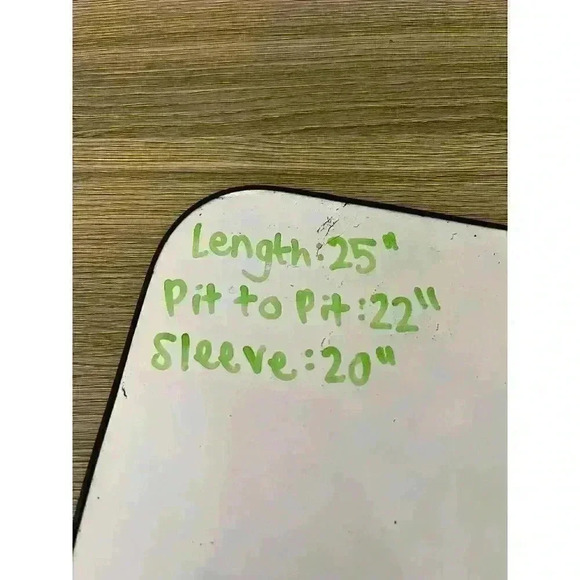 Length: 25"
Pit to Pit: 22"
Sleeve: 20"